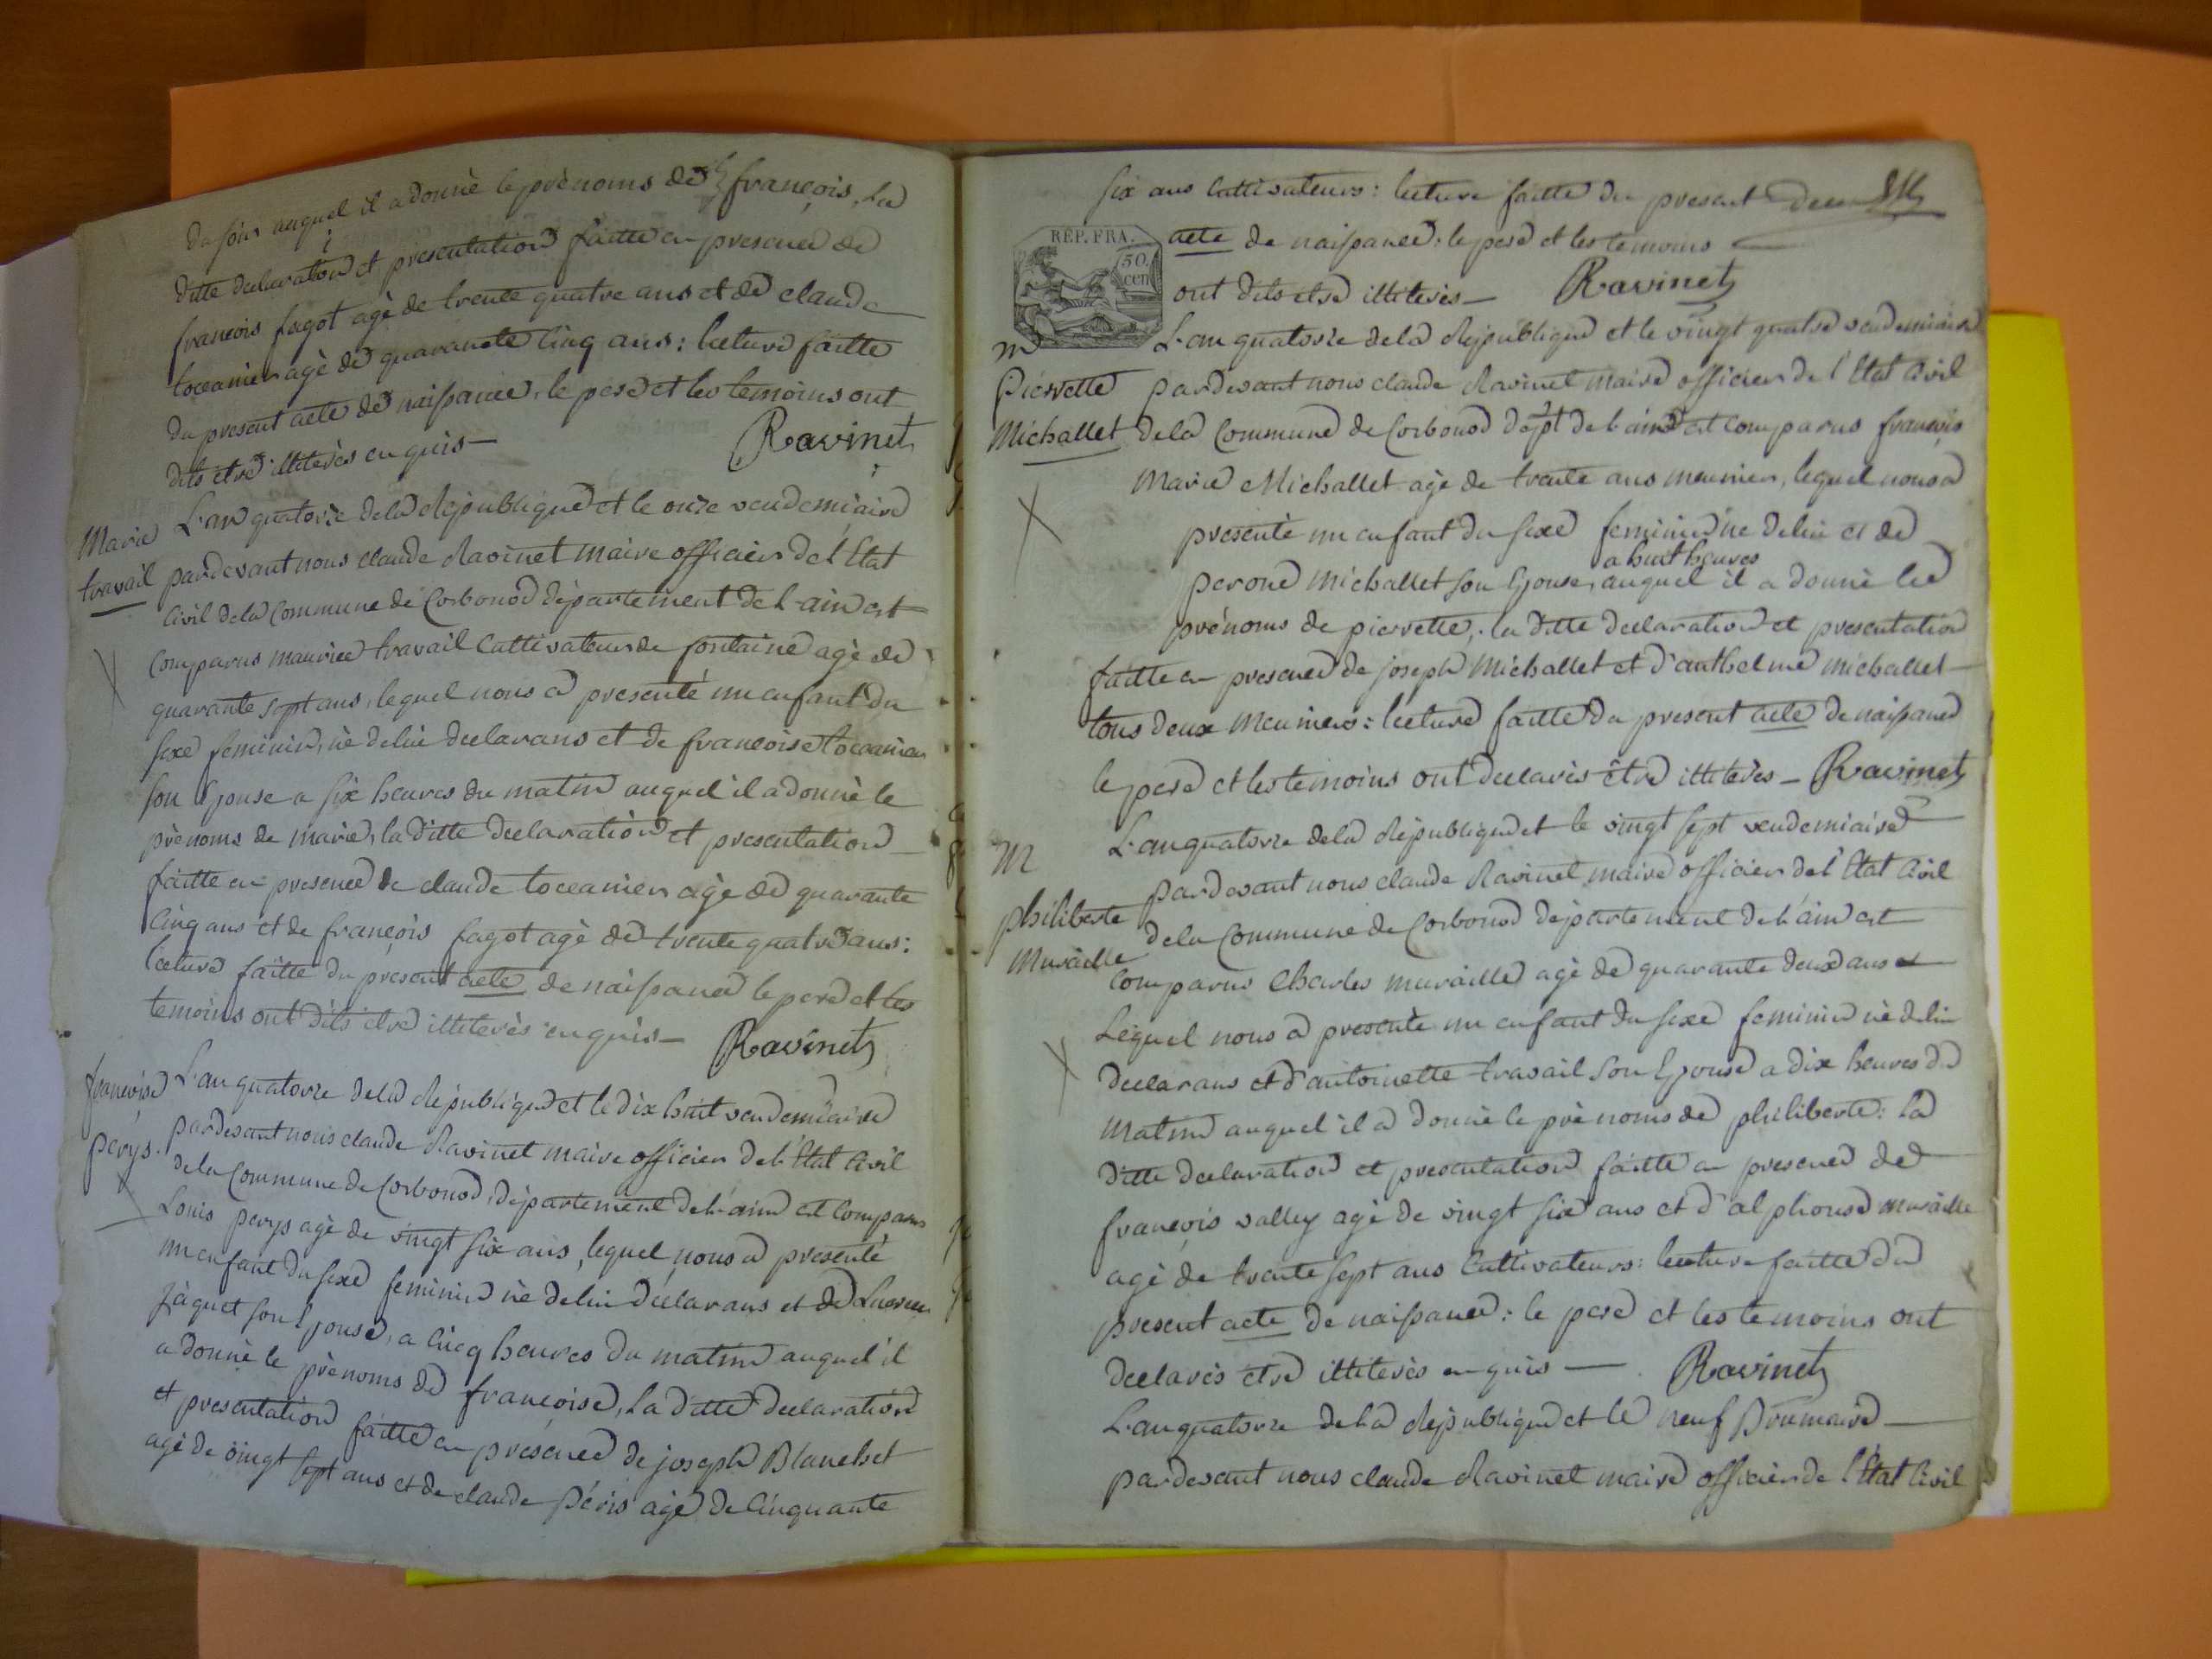 du soir auquel il a donnè le prènoms de françois, La
ditte declaration et presentation faitte en presence de
francois fagot agè de trente quatre ans et de claude
toccanier agè de quarante cinq ans: lecture faitte
du present acte de naissance, le pere et les temoins ont
dits etre illiterès enquis — Ravinet
Marie
travail
L'an quatorze de la Republique et le onze vendemiaire
pardevant nous claude Ravinet maire officier de l'Etat
Civil de la Commune de Corbonod dèpartement de l'ain est
comparus maurice travail Cultivateur de fontaine agè de
quarante sept ans, lequel nous a presenté un enfant du
sexe feminin, nè de lui declarans et de francoise toccanier
son Epouse a six heures du matin auquel il a donnè le
prènoms de marie, la ditte declaration et presentation
faitte en presence de claude toccanier agè de quarante
cinq ans et de françois fagot agè de trente quatre ans:
lecture faitte du present acte de naissance le pere et les
temoins ont dits etre illiterès enquis — Ravinet
francoise
perys
L'an quatorze de la Republique et le dix huit vendemiaire
pardevant nous claude Ravinet maire officier de l'Etat Civil
de la Commune de Corbonod, dèpartement de l'ain est comparus
Louis perys agè de vingt six ans, lequel nous a presenté
un enfant du sexe feminin nè de lui declarans et de
jàquet son Epouse, a cincq heures du matin auquel il
a donnè le prènoms de francoise, La ditte declaration
et presentation faitte en presence de joseph Blanchet
agè de vingt sept ans et de claude Péris agè de Cinquante
six ans Cultivateurs: lecture faitte du present
REP. FRA.
50.
cen
acte de naissance: le pere et les temoins
ont dits etre illiterès — Ravinet
m
Pierrette
Michallet
L'an quatorze de la Republique et le vingt quatre vendemiaire
pardevant nous claude Ravinet maire officier de l'Etat Civil
de la Commune de Corbonod dèpt de l'ain est comparus francois
Marie Michallet agè de trente ans meunier, lequel nous a
presentè un enfant du sexe feminin nè de lui et de
a huit heures
perone michallet son Epouse, auquel il a donnè le
prènoms de pierrette, la ditte declaration et presentation
faitte en presence de joseph Michallet et d'anthelme michallet
tous deux meuniers: lecture faitte du present acte de naissance
le pere et les temoins ont declarès être illiterès — Ravinet
m
philiberte
Muraille
L'an quatorze de la Republique et le vingt sept vendemiaire
pardevant nous claude Ravinet maire officier de l'Etat Civil
de la Commune de Corbonod dèpartement de l'ain est
comparus Charles muraille agè de quarante deux ans
Lequel nous a presentè un enfant du sexe feminin nè de lui
declarans et d'antoinette travail son Epouse a dix heures du
matin auquel il a donnè le prènoms de philiberte: la
ditte declaration et presentation faitte en presence de
françois valley agè de vingt six ans et d'alphonse muraille
agè de trente sept ans Cultivateurs: lecture faitte du
present acte de naissance: le pere et les temoins ont
declarès etre illiterès enquis — Ravinet
L'an quatorze de la Republique et le neuf Brumaire
pardevant nous claude Ravinet maire officier de l'Etat Civil